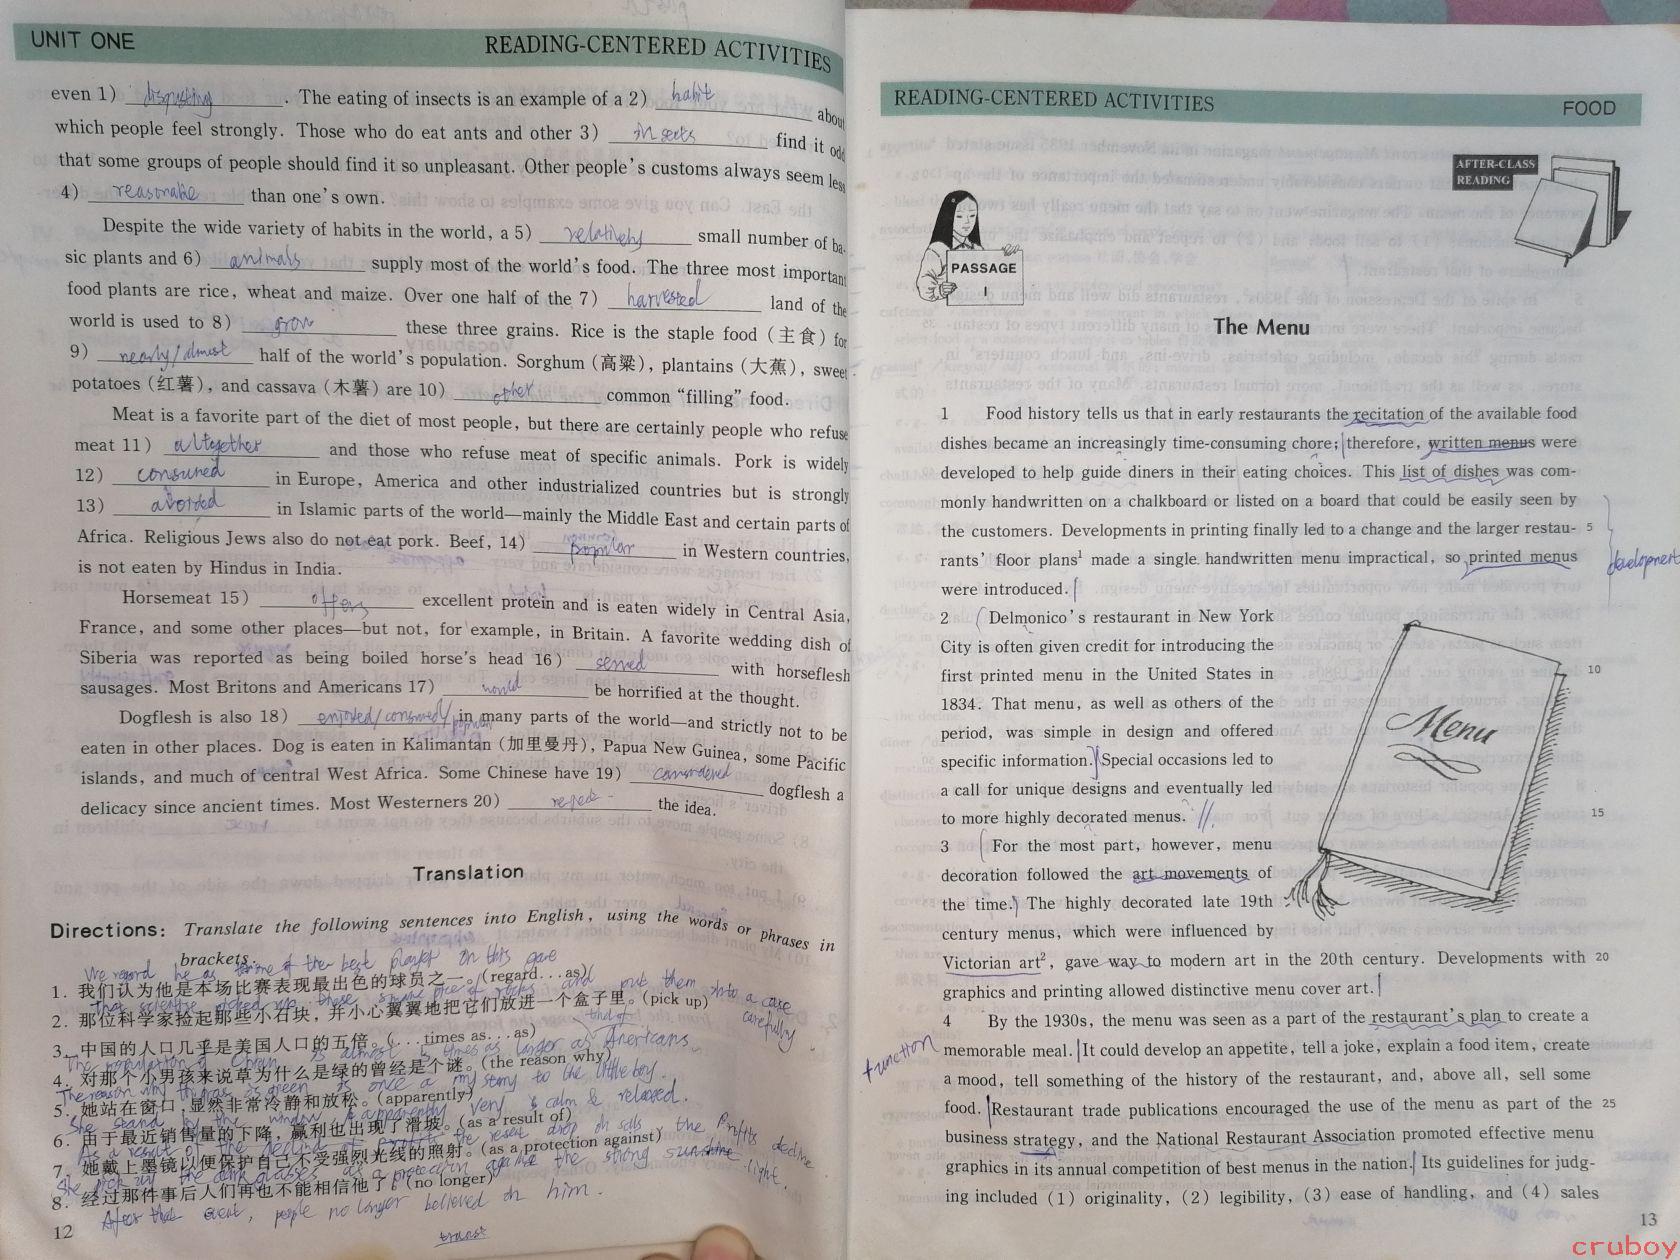 UNIT ONE
READING-CENTERED ACTIVITIES
even 1) disgusting . The eating of insects is an example of a 2) habit about
which people feel strongly. Those who do eat ants and other 3) insects find it odd
that some groups of people should find it so unpleasant. Other people's customs always seem less
4) reasonable than one's own.
Despite the wide variety of habits in the world, a 5) relatively small number of ba-
sic plants and 6) animals supply most of the world's food. The three most important
food plants are rice, wheat and maize. Over one half of the 7) harvested land of the
world is used to 8) grow these three grains. Rice is the staple food (主食) for
9) nearly/almost half of the world's population. Sorghum (高粱), plantains (大蕉), sweet
potatoes (红薯), and cassava (木薯) are 10) other common "filling" food.
Meat is a favorite part of the diet of most people, but there are certainly people who refuse
meat 11) altogether and those who refuse meat of specific animals. Pork is widely
12) consumed in Europe, America and other industrialized countries but is strongly
13) avoided in Islamic parts of the world—mainly the Middle East and certain parts of
Africa. Religious Jews also do not eat pork. Beef, 14) popular in Western countries,
is not eaten by Hindus in India.
Horsemeat 15) offers excellent protein and is eaten widely in Central Asia,
France, and some other places—but not, for example, in Britain. A favorite wedding dish of
Siberia was reported as being boiled horse's head 16) served with horseflesh
sausages. Most Britons and Americans 17) would be horrified at the thought.
Dogflesh is also 18) enjoyed/consumed/popular in many parts of the world—and strictly not to be
eaten in other places. Dog is eaten in Kalimantan (加里曼丹), Papua New Guinea, some Pacific
islands, and much of central West Africa. Some Chinese have 19) considered dogflesh a
delicacy since ancient times. Most Westerners 20) reject the idea.
Translation
Directions: Translate the following sentences into English, using the words or phrases in
brackets.
We regard he as one of the best player in this game
1. 我们认为他是本场比赛表现最出色的球员之一。(regard...as)
That scientist picked up those small piece of rocks and put them into a case carefully
2. 那位科学家捡起那些小石块,并小心翼翼地把它们放进一个盒子里。(pick up)
3. 中国的人口几乎是美国人口的五倍。(...times as...as)
The population of China is almost 5 times as larger as that of Americans.
4. 对那个小男孩来说草为什么是绿的曾经是个谜。(the reason why)
The reason why the grass is green is once a mystery to the little boy.
5. 她站在窗口,显然非常冷静和放松。(apparently)
She stand by the window, apparently very calm & relaxed.
6. 由于最近销售量的下降,赢利也出现了滑坡。(as a result of)
As a result of the recent drop in sales the Profits decline
7. 她戴上墨镜以便保护自己不受强烈光线的照射。(as a protection against)
She pick up the dark glasses as a protection against the strong light.
8. 经过那件事后人们再也不能相信他了。(no longer)
After that event, people no longer believed in him.
12
READING-CENTERED ACTIVITIES
FOOD
AFTER-CLASS
READING
PASSAGE
I
The Menu
1 Food history tells us that in early restaurants the recitation of the available food
dishes became an increasingly time-consuming chore; therefore, written menus were
developed to help guide diners in their eating choices. This list of dishes was com-
monly handwritten on a chalkboard or listed on a board that could be easily seen by
the customers. Developments in printing finally led to a change and the larger restau- 5
rants' floor plans1 made a single handwritten menu impractical, so printed menus
development
were introduced.
2 Delmonico's restaurant in New York
City is often given credit for introducing the
first printed menu in the United States in 10
1834. That menu, as well as others of the
period, was simple in design and offered
specific information. Special occasions led to
a call for unique designs and eventually led
to more highly decorated menus. 15
3 For the most part, however, menu
decoration followed the art movements of
the time. The highly decorated late 19th
century menus, which were influenced by
Menu
Victorian art2, gave way to modern art in the 20th century. Developments with 20
graphics and printing allowed distinctive menu cover art.
4 By the 1930s, the menu was seen as a part of the restaurant's plan to create a
function
memorable meal. It could develop an appetite, tell a joke, explain a food item, create
a mood, tell something of the history of the restaurant, and, above all, sell some
food. Restaurant trade publications encouraged the use of the menu as part of the 25
business strategy, and the National Restaurant Association promoted effective menu
graphics in its annual competition of best menus in the nation. Its guidelines for judg-
ing included (1) originality, (2) legibility, (3) ease of handling, and (4) sales
13
cruboy